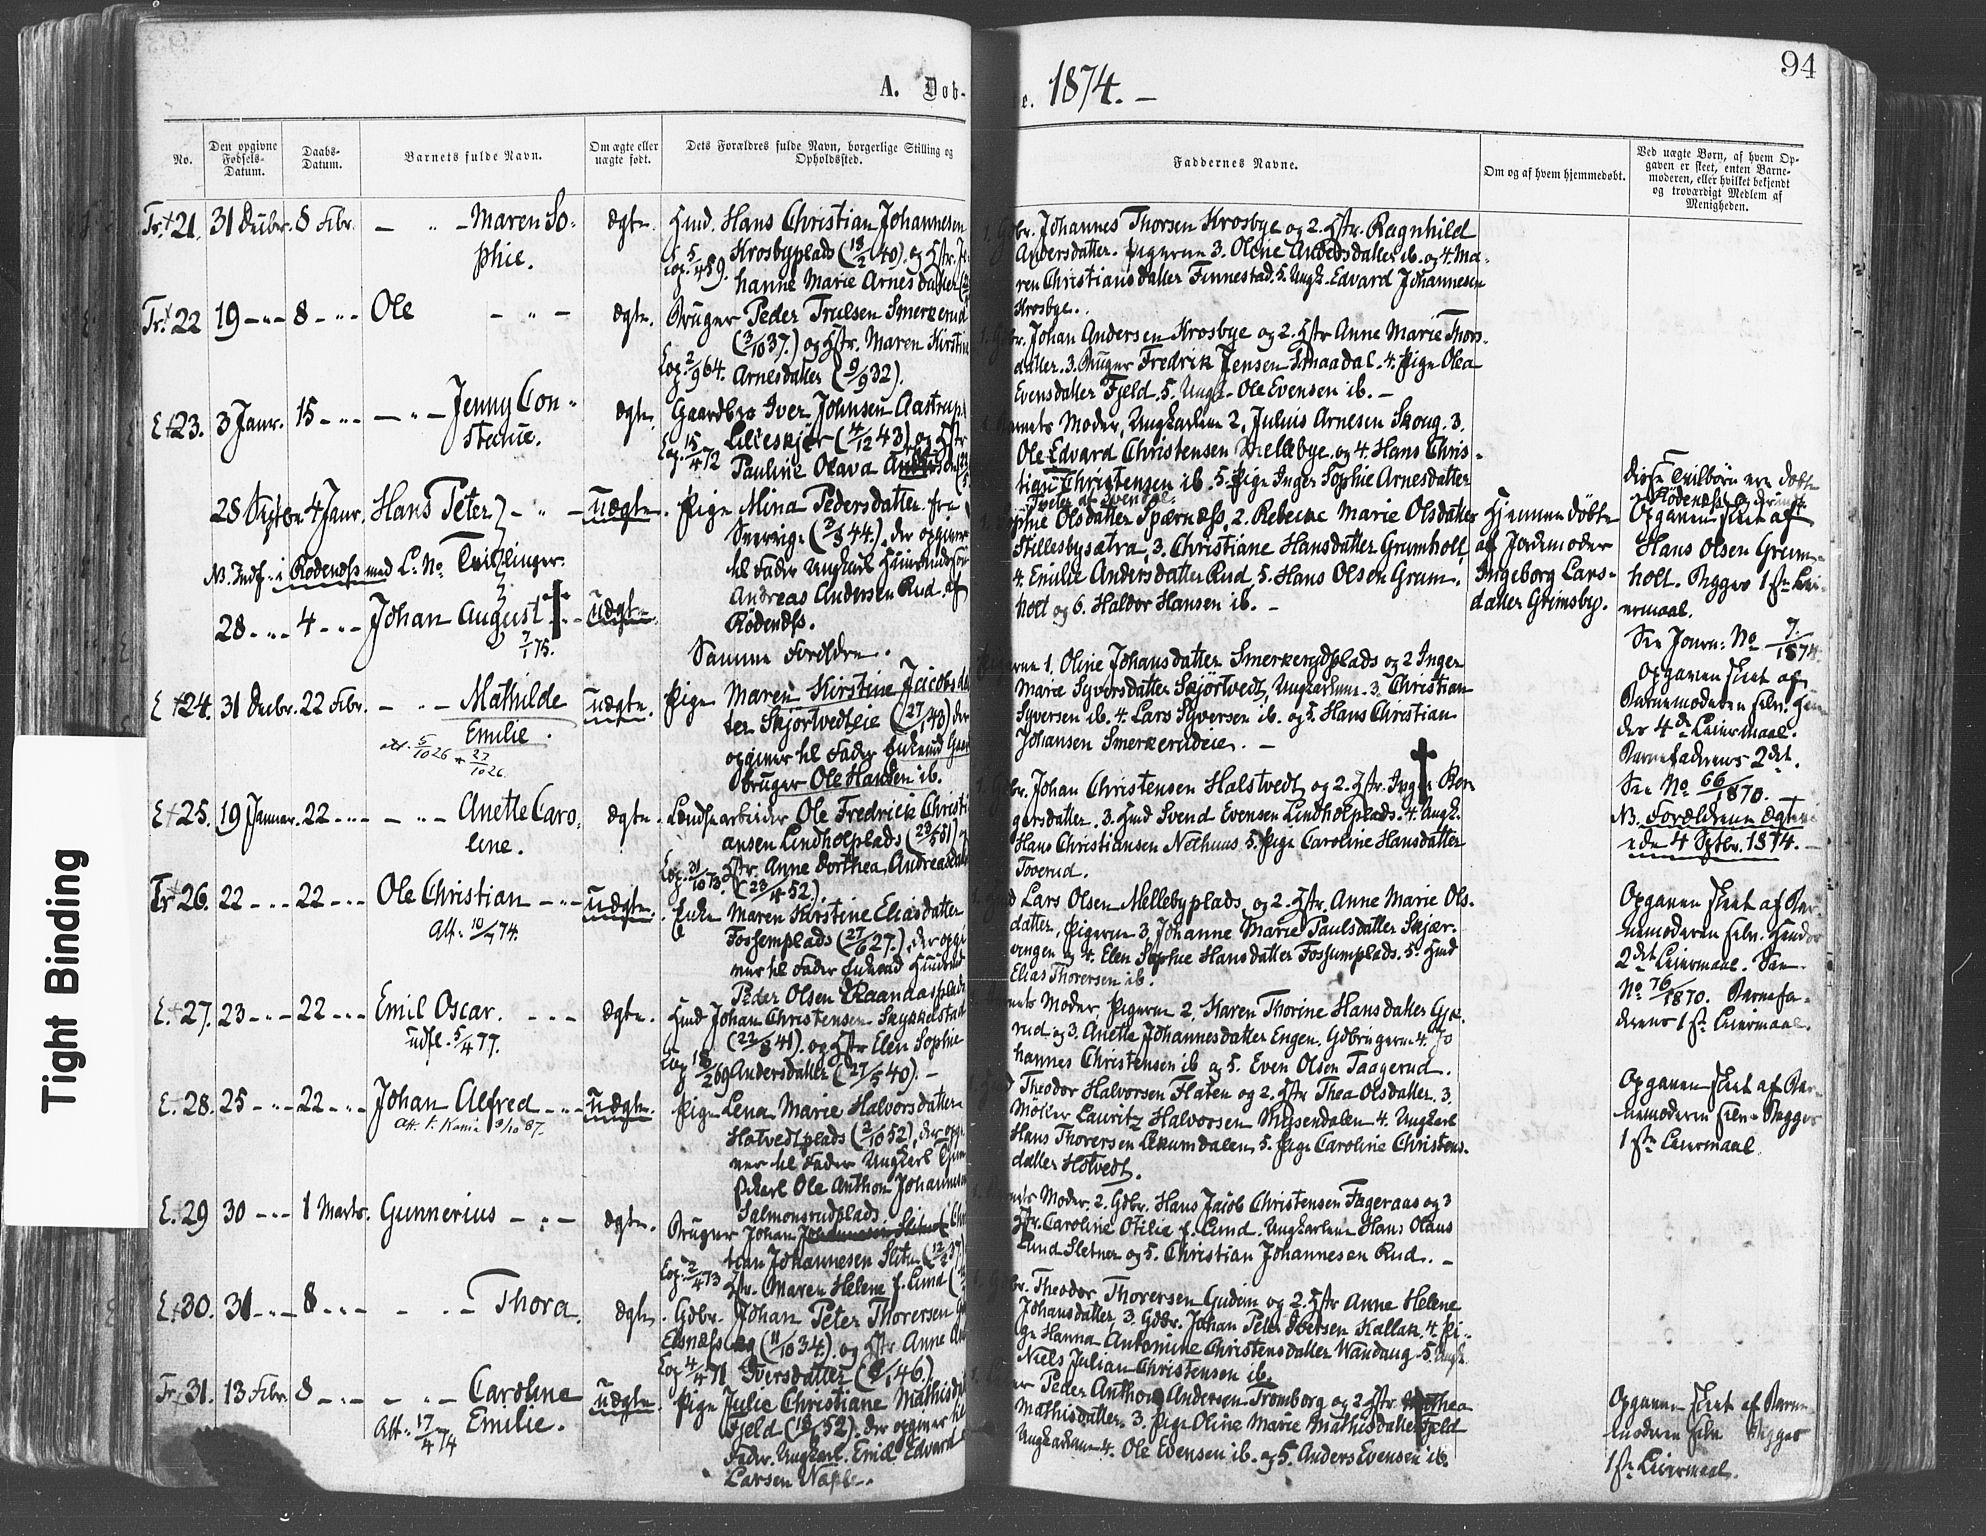 94
A. Døb-
e. 1874. –
No.
Den opgivne
Fødsels-
Datum.
Daabs-
Datum.
Barnets fulde Navn.
Om ægte eller
uægte født.
Dets Forældres fulde Navn, borgerlige Stilling og
Opholdssted.
Faddernes Navne.
Om og af hvem hjemmedøbt.
Ved uægte Børn, af hvem Op-
gaven er skeet, enten Barne-
moderen, eller hvilket bekjendt
og troværdigt Medlem af
Menigheden.
Tr. 21. 31 Decbr. 8 Febr. – " – Maren So-
phie.
ægte.
Hmd Hans Christian Johannesen
Krosbyplads (18/2 40) og Hstr. Jo-
Cop. 5/4 59. hanne Marie Arnesdatter
1. Gdbr. Johannes Thorsen Krosbye og 2. Hstr. Ragnhild
Andersdatter. Pigerne 3. Oline Andersdatter ib. og 4. Ma-
ren Christiansdatter Finnestad. 5. Ungk. Edvard Johannesen
Krosbye.
Tr. 22 19 – " – 8 – " – Ole – " –
ægte.
Bruger Peder Trulsen Smerkerud
(3/10 37.) og Hstr. Maren Kirstine
Cop. 2/9 64. Arnesdatter (9/9 32).
1. Gdbr. Johan Andersen Krosbye og 2. Hstr Anne Marie Thors-
datter. 3. Bruger Fredrik Jensen Smaadal. 4. Pige Olea
Evensdatter Fjeld. 5. Ungk. Ole Evensen ib. –
E 23. 3 Janr. 15 – " – – " – Jenny Con-
stance.
ægte.
Gaardbr. Iver Johnsen Aastrup
Lilleskjær (4/12 43) og Hstr
Cop. 15/4 72 Pauline Olava
1. Barnets Moder, Ungkarlene 2. Julius Arnesen Skoug. 3.
Ole Edvard Christensen Mellebye og 4. Hans Chris-
tian Christensen ib. 5. Pige Inger Sophie Arnesdatter
28 Septbr 4 Janr. Hans Peter – " –
uægte.
Pige Mina Pedersdatter fra
Sverrige (2/3 44.), der opgiver
til Fader Ungkarl
Andreas Andersen Rud af
Rødenæss.
NB. Indf. i Rødenæss med L. No. Tvillinger.
Sophie Olsdatter Spærnæss, 2. Rebecke Marie Olsdatter
Stillesbysætra, 3. Christiane Hansdatter Grumholt,
4. Emilie Andersdatter Rud, 5. Hans Olsen Grum-
holt og 6. Haldor Hansen ib. –
Hjemmedøbte
af Jordemoder
Ingeborg Lars-
datter Grimsby.
disse Tvilbørn ere døbte
Opgaven skeet af
Hans Olsen Grum-
holt. Begges 1ste Lei-
ermaal.
See Journ: No 7/1874.
28 – " – 4 – " – Johan August †
7/1 75.
uægte.
Samme Forældre.
E 24. 31 Decbr. 22 Febr. – " – Mathilde
Emilie.
5/10 26 27/10 26.
uægte.
Pige Maren Kirstine Jacobsdat-
ter Skjørtvedteie (27/ 43) der
opgiver til Fader Enkemd Gaard-
bruger Ole Hansen ib.
Pigerne 1. Oline Johansdatter Smerkerudplads og 2 Inger
Marie Syversdatter Skjørtvedt, Ungkarlene 3. Christian
Syversen ib. 4. Lars Syversen ib. og 5. Hans Christian
Johansen Smerkerudeie. –
Opgaven skeet af
Barnemoderen selv. Hen-
des 4de Leiermaal.
Barnefaderens 2det.
See No 66/1870. –
NB. Forældrene ægtev.
den 4 Septbr. 1874. –
E 25. 19 Januar. 22 – " – – " – Anette Caro-
line.
ægte.
Landsarbeider Ole Fredrick Christi-
ansen Lindholplads
Cop. 31/10 73. Hstr. Anne Dorthea Andreasdatter
(23/4 52).
1. Gdbr. Johan Christensen Halstvedt og 2. Hstr. Inger Bor-
gersdatter. 3. Hmd Svend Evensen Lindholplads. 4. Ungk.
Hans Christiansen Nethuus. 5. Pige Caroline Hansdatter
Tooerud.
Tr 26. 22 – " – 22 – " – Ole Christian – " –
Att. 10/7 74.
uægte.
Enke Maren Kirstine Eliasdatter
Fossemplads (27/6 27.), der opgi-
ver til Fader Enkemd Huusmd
Peder Olsen Raandasplads
1. Hmd Lars Olsen Mellebyplads og 2. Hstr. Anne Marie Ols-
datter, Pigerne 3. Johanne Marie Paulsdatter Skjær-
engen og 4. Elen Sophie Hansdatter Fossumplads. 5. Hmd
Elias Thorersen ib.
Opgaven skeet af Bar-
nemoderen selv. Hendes
2det Leiermaal. See
No 76/1870. Barnefa-
derens 1ste Leiermaal.
E. 27. 23 – " – 22 – " – Emil Oscar. – – –
Udfl. 5/4 77.
ægte.
Hmd Johan Christensen
(22/8 41). og Hstr Elen Sophie
Cop 18/2 69 Andersdatter (27/5 40). –
Barnets Moder, Pigerne 2. Karen Thorine Hansdatter
rud og 3. Anette Johannesdatter Engen. Gdbrugerne 4. Jo-
hannes Christensen ib og 5. Even Olsen Taagerud.
E. 28. 25 – " – 22 – " – Johan Alfred – " –
9/10 87.
uægte.
Pige Lena Marie Halvorsdatter
Hotvedtplads (2/10 52), der opgi-
ver til Fader Ungkarl
Ole Anthon Johannesen
Salmonsrudplads.
Theodor Halvorsen Flaten og 2. Hstr Thea Olsdatter. 3.
Møller Lauritz Halvorsen Mysendalen 4. Ungkarl
Hans Thorersen Lekumdalen, 5. Pige Caroline Christens-
datter Hotvedt.
Opgaven skeet af Bar-
nemoderen selv – Begges
1ste Leiermaal.
E. 29 30 – " – 1 Marts. Gunnerius – " –
ægte.
Bruger Johan
tian Johannesen Sletner
Cop. 2/4 73 Hstr. Maren Helene f. Lund
1. Barnets Moder. 2. Gdbr. Hans Jacob Christensen Fageraas og 3
Hstr. Caroline Otilie f. Lund. Ungkarlene Hans Olaus
Lund Sletner og 5. Christian Johannesen Rud. –
E. 30. 31 – " – 8 – " – – " – Thora.
ægte.
Gdbr. Johan Peter Thorersen
(11/10 34). og Hstr. Anne
Cop 4/4 71 Iversdatter
1. Gdbr. Theodor Thorersen Gudem og 2. Hstr Anne Helene
Johansdatter, 3. Gdbr. Johan Peter Iversen Kallak. 4. Pi-
ge Hanna Antonine Christensdatter Wandaug. 5. Ungk.
Niels Julian Christensen ib.
Tr. 31. 13 Febr. 8 – " – – " – Caroline
Emilie.
Att. 17/4 74
uægte.
Pige Julie Christiane Mathisdatter
Fjeld , der opgiver til
Fader Ungkarl Emil Edvard
Larsen
Peder Anthon Andersen Tromborg og 2. Hstr. Mathea
Mathisdatter. 3. Pige Oline Marie Mathisdatter Fjeld
Ungkarlene 4. Ole Evensen ib. og 5. Anders Evensen ib.
Opgaven skeet af Barne-
moderen selv Begges
1ste Leiermaal.
Tight Binding